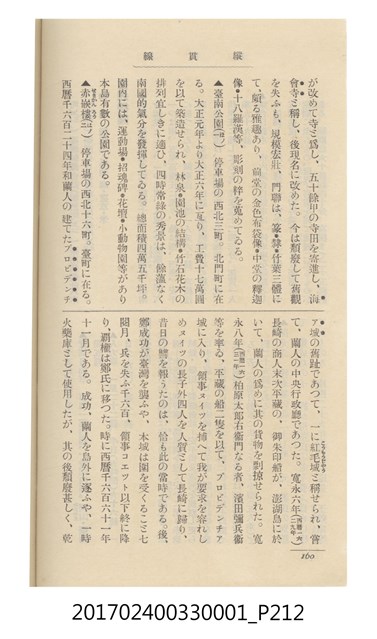 縱貫線
が改めて寺と爲し、五十餘甲の寺田を寄進し、海
會寺と稱し、後現名に改めた。今は頽廢して舊觀
を失ふも、規模宏壯、門聯は、篆隸竹葉三體に
て、頗る雅趣あり、前堂の金色布袋像・中堂の釋迦
像・十八羅漢等、彫刻の粹を蒐めてゐる。
▲臺南公園 停車場の西北三町、北門町に在
る。大正元年より大正六年に亙り、工費十七萬圓
を以て築造せられ、林泉・園池の結構・竹石花木の
排列宜しきに適ひ、四時常綠の秀景は、餘蘊なく
南國的氣分を發揮してゐる。總面積四萬五千坪。
園内には、運動場・招魂碑・花壇・小動物園等があり
本島有數の公園である。
▲赤嵌樓 停車場の西北十六町。臺町に在る。
西曆千六百二十四年和蘭人の建てたプロビデンチ
ァ城の舊趾であつて、一に紅毛城と稱せられ、嘗
て、蘭人の中央行政廳であつた。寬永六年
長崎の商人末次平藏の、御朱印船が、澎湖島に於
いて、蘭人の爲めに其の貨物を剽掠せられた。寬
永八年 柏原太郎右衞門なる者、濱田彌兵衞
等を率ゐ、平藏の船二隻を以て、プロビデンチア
城に入り、領事ヌイツを捕へて我が要求を容れし
めヌイツの長子外四人を人質として長崎に歸り、
昔日の讐を報うたのは、恰も此の當時である。後、
鄭成功が臺灣を襲ふや、本城は圍を受くること七
閱月、兵を失ふ千六百、領事コエット以下終に降
り、覇權は鄭氏に移つた。時に西曆千六百六十一年
十一月である。成功、蘭人を島外に逐ふや、一時
火藥庫として使用したが、其の後頽廢甚しく、乾
160
201702400330001_P212